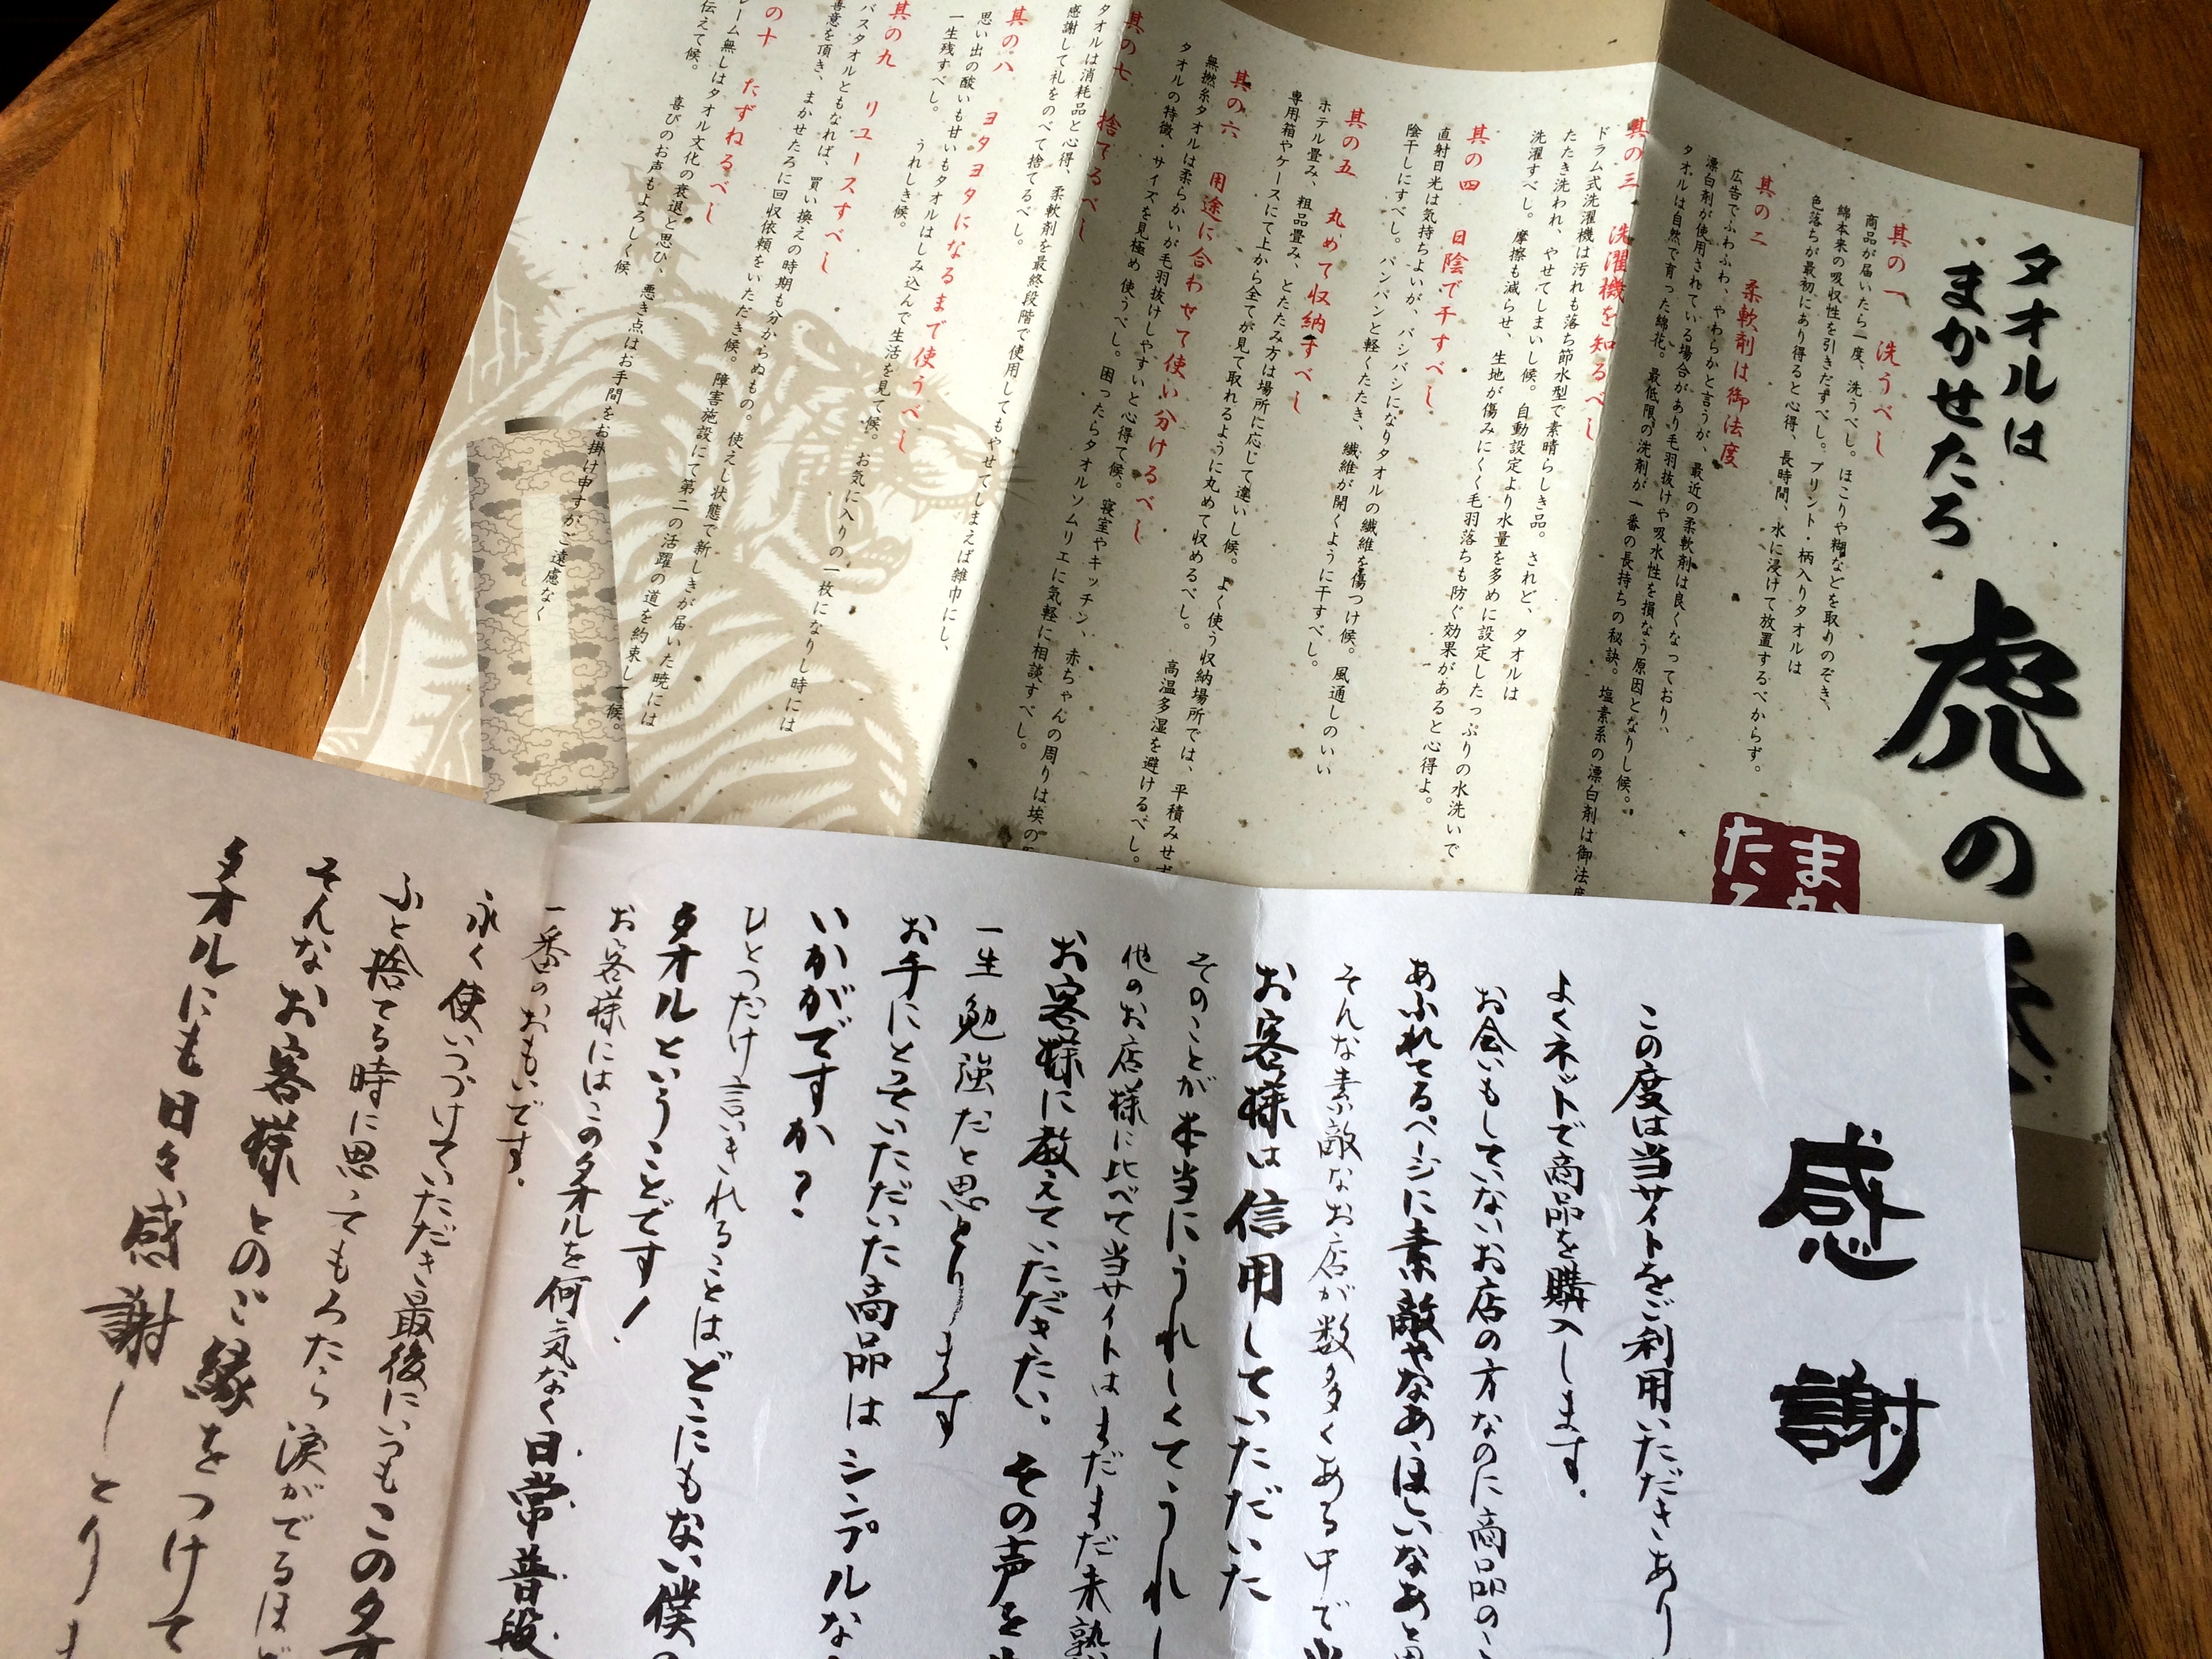 タオルは
まかせたろ
虎の
其の一 洗うべし
商品が届いたら一度、洗うべし。ほこりや糊などを取りのぞき、
綿本来の吸収性を引きだすべし。プリント・柄入りタオルは
色落ちが最初にあり得ると心得、長時間、水に浸けて放置するべからず。
其の二 柔軟剤は御法度
広告でふわふわ、やわらかと言うが、最近の柔軟剤は良くなっており、
漂白剤が使用されている場合があり毛羽抜けや吸水性を損なう原因となりし候。
タオルは自然で育った綿花。最低限の洗剤が一番の長持ちの秘訣。塩素系の漂白剤は御法度
其の三 洗濯機を知るべし
ドラム式洗濯機は汚れも落ち節水型で素晴らしき品。されど、タオルは
たたき洗われ、やせてしまいし候。自動設定より水量を多めに設定したっぷりの水洗いで
洗濯すべし。摩擦も減らせ、生地が傷みにくく毛羽落ちも防ぐ効果があると心得よ。
其の四 日陰で干すべし
直射日光は気持ちよいが、バシバシになりタオルの繊維を傷つけ候。風通しのいい
陰干しにすべし。パンパンと軽くたたき、繊維が開くように干すべし。
其の五 丸めて収納すべし
ホテル畳み、粗品畳み、とたたみ方は場所に応じて違いし候。よく使う収納場所では、平積みせず
専用箱やケースにて上から全てが見て取れるように丸めて収めるべし。高温多湿を避けるべし。
其の六 用途に合わせて使い分けるべし
無撚糸タオルは柔らかいが毛羽抜けしやすいと心得て候。寝室やキッチン、赤ちゃんの周りは埃の
タオルの特徴・サイズを見極め使うべし。困ったらタオルソムリエに気軽に相談すべし。
其の七 捨てるべし
タオルは消耗品と心得、柔軟剤を最終段階で使用してもやせてしまえば雑巾にし、
感謝して礼をのべて捨てるべし。
其の八 ヨタヨタになるまで使うべし
思い出の酸いも甘いもタオルはしみ込んで生活を見て候。お気に入りの一枚になりし時には
一生残すべし。うれしき候。
其の九 リユースすべし
バスタオルともなれば、買い換えの時期も分からぬもの。使えし状態で新しきが届いた暁には
善意を頂き、まかせたろに回収依頼をいただき候。障害施設にて第二の活躍の道を約束して候。
の十 たずねるべし
レーム無しはタオル文化の衰退と思ひ、悪き点はお手間をお掛け申すがご遠慮なく
伝えて候。喜びのお声もよろしく候
まか
たろ
感謝
この度は当サイトをご利用いただきあり
よくネットで商品を購入します。
お会いもしていないお店の方なのに商品のこ
あふれてるページに素敵やなあ、ほしいなあと思
そんな素敵なお店が数多くある中で当
お客様は信用していただいた
そのことが本当にうれしくてうれし
他のお店様に比べて当サイトはまだまだ未熟
お客様に教えていただきたい。その声を
一生勉強だと思とります
お手にとっていただいた商品はシンプルな
いかがですか？
ひとつだけ言いきれることはどこにもない僕の
タオルということです！
お客様にはこのタオルを何気なく日常普段
一番のおもいです。
永く使いつづけていただき最後にいつもこのタオ
ふと捨てる時に思ってもろたら涙がでるほど
そんなお客様とのご縁をつけて
タオルにも日々感謝しとりま